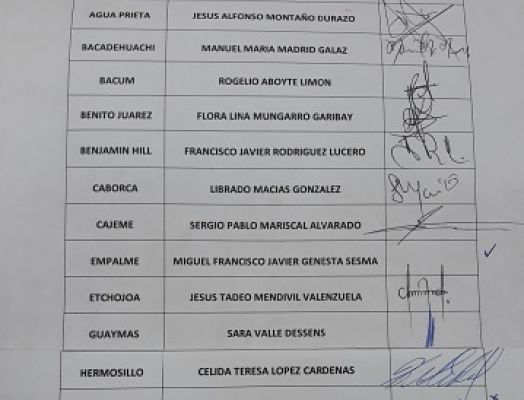 AGUA PRIETA JESUS ALFONSO MONTAÑO DURAZO
BACADEHUACHI MANUEL MARIA MADRID GALAZ
BACUM ROGELIO ABOYTE LIMON
BENITO JUAREZ FLORA LINA MUNGARRO GARIBAY
BENJAMIN HILL FRANCISCO JAVIER RODRIGUEZ LUCERO
CABORCA LIBRADO MACIAS GONZALEZ
CAJEME SERGIO PABLO MARISCAL ALVARADO
EMPALME MIGUEL FRANCISCO JAVIER GENESTA SESMA
ETCHOJOA JESUS TADEO MENDIVIL VALENZUELA
GUAYMAS SARA VALLE DESSENS
HERMOSILLO CELIDA TERESA LOPEZ CARDENAS